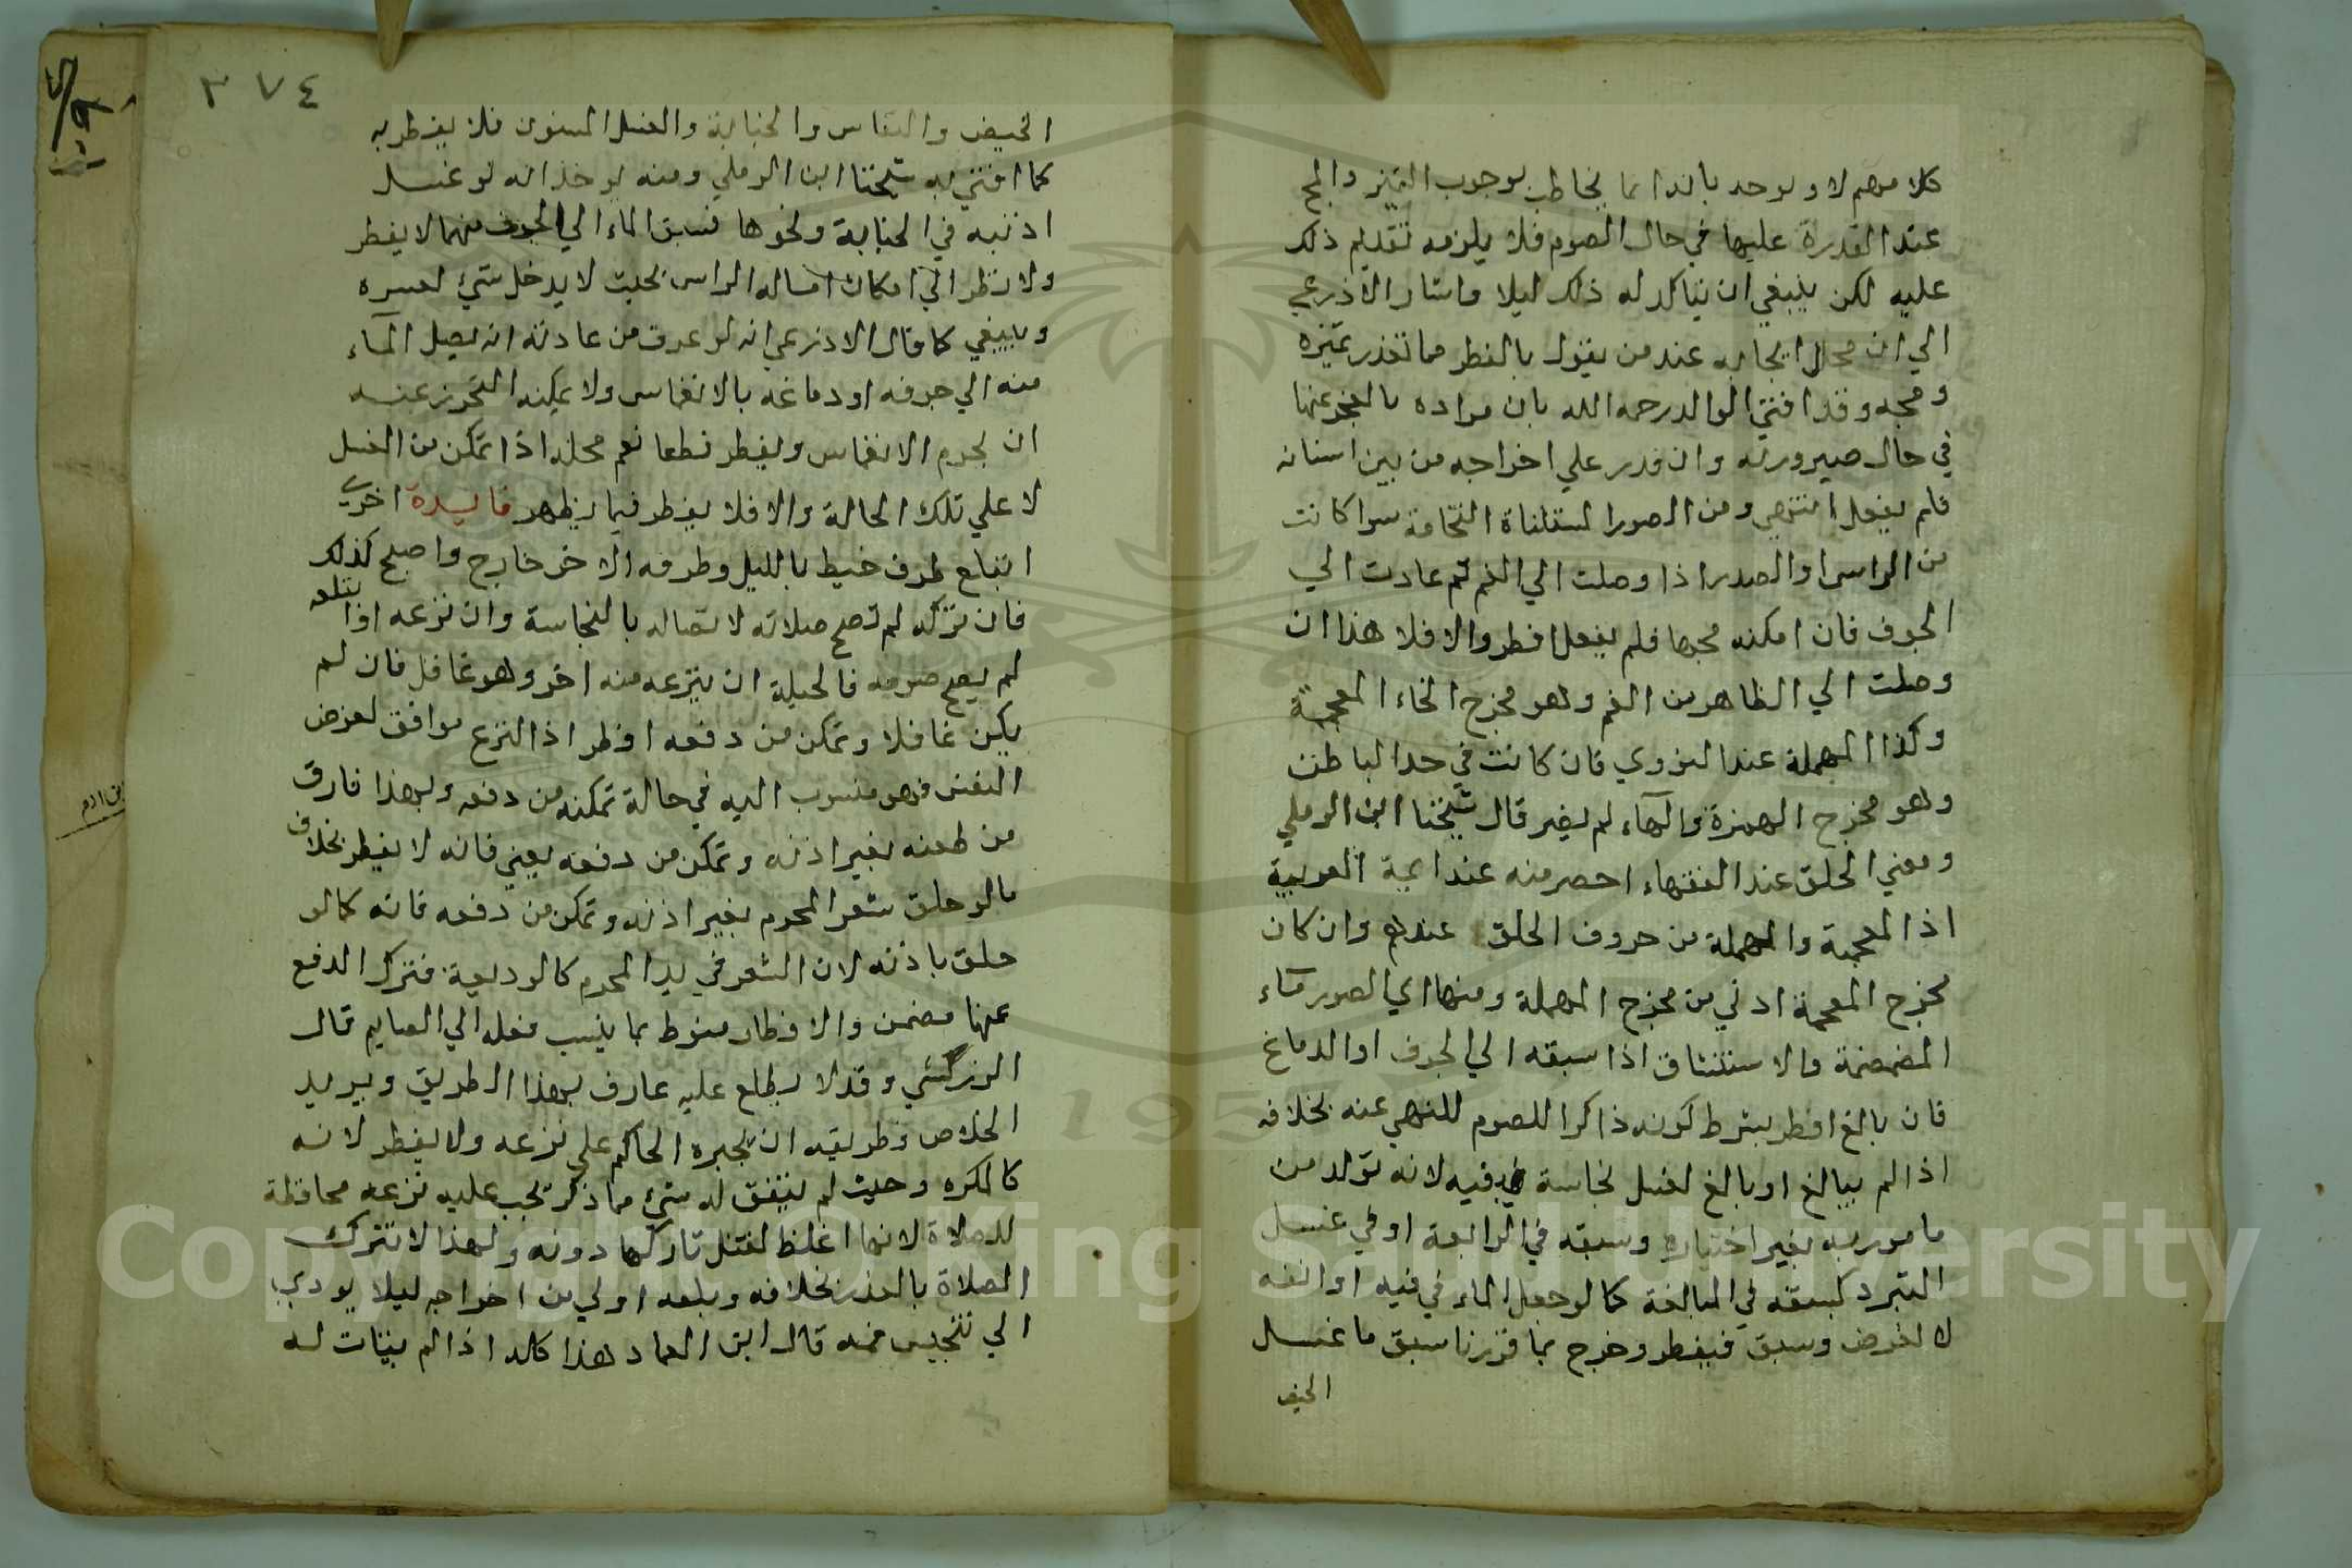 كلامهم لا ويوجه بانه انما يخاطب بوجوب التميز والمج
عند القدرة عليها في حال الصوم فلا يلزمه تقديم ذلك
عليه لكن ينبغي ان يتاكد له ذلك ليلا واشار الاذرعي
الي ان محل ايجابه عند من يقول بالفطر مما تعذر تميزه
ومجه وقد افتي الوالد رحمه الله بان مراده بالعجز عنها
في حال صيرورته وان قدر علي اخراجه من بين اسنانه
فلم يفعل انتهي ومن الصور المستثناة النخامة سوا كانت
من الراس او الصدر اذا وصلت الي الفم ثم عادت الي
الجوف فان امكنه مجها فلم يفعل افطر والا فلا هذا ان
وصلت الي الظاهر من الفم وهو مخرج الخاء المعجمة
وكذا المهملة عند النووي فان كانت في حد الباطن
وهو مخرج الهمزة والهاء لم يضر قال شيخنا ابن الرملي
ومعني الحلق عند الفقهاء احصر منه عند ايمة العربية
اذ المعجمة والمهملة من حروف الحلق عندهم وان كان
مخرج المعجمة ادني من مخرج المهملة ومنها اي الصور ماء
المضمضة والاستنشاق اذا سبقه الي الجوف او الدماغ
فان بالغ افطر بشرط كونه ذاكرا للصوم للنهي عنه بخلافه
اذا لم يبالغ او بالغ لغسل نجاسة فيه لانه تولد من
مامور به بغير اختياره وسبقه في الرابعة او في غسل
التبرد كسبقه في المبالغة كما لو جعل الماء في فيه او انفه
لا لغرض وسبق فيفطر وخرج بما قررنا سبق ما غسل
الحيض
٣٧٤
الحيض والنفاس والجنابة والغسل المسنون فلا يفطر به
كما افتي به شيخنا ابن الرملي ومنه يوخذ انه لو غسل
اذنيه في الجنابة ونحوها فسبق الماء الي الجوف منهما لا يفطر
ولا نظر الي امكان امساله الراس بحيث لا يدخل شي لعسره
وينبغي كما قال الاذرعي انه لو عرف من عادته انه يصل الماء
منه الي جوفه او دماغه بالانغماس ولا يمكنه التحرز عنه
ان يحرم الانغماس ويفطر قطعا نعم محله اذا تمكن من الغسل
لا علي تلك الحالة والا فلا يفطر فيما يظهر فايدة اخري
ابتلع طرف خيط بالليل وطرفه الاخر خارج واصبح كذلك
فان تركه لم تصح صلاته لاتصاله بالنجاسة وان نزعه او ابتلعه
لم يصح صومه فالحيلة ان ينزعه منه اخر وهو غافل فان لم
يكن غافلا وتمكن من دفعه افطر اذ النزع موافق لغرض
النفس فهو منسوب اليه في حالة تمكنه من دفعه وبهذا فارق
من طعنه بغير اذنه وتمكن من دفعه يعني فانه لا يفطر بخلاف
ما لو حلق شعر المحرم بغير اذنه وتمكن من دفعه فانه كما لو
حلق باذنه لان الشعر في يد المحرم كالوديعة فترك الدفع
عنها مضمن والافطار منوط بما ينسب فعله الي الصايم قال
الزركشي وقد لا يطلع عليه عارف بهذا الطريق ويريد
الخلاص فطريقه ان يجبره الحاكم علي نزعه ولا يفطر لانه
كالمكره وحيث لم يتفق له شي مما ذكر يجب عليه نزعه محافظة
للصلاة لانها اغلظ لقتل تاركها دونه ولهذا لا تترك
الصلاة بالعذر بخلافه وبلعه اولي من اخراجه ليلا يودي
الي تنجيس فمه قال ابن العماد هذا كله اذا لم يتات له
Copyright © King Saud University
195